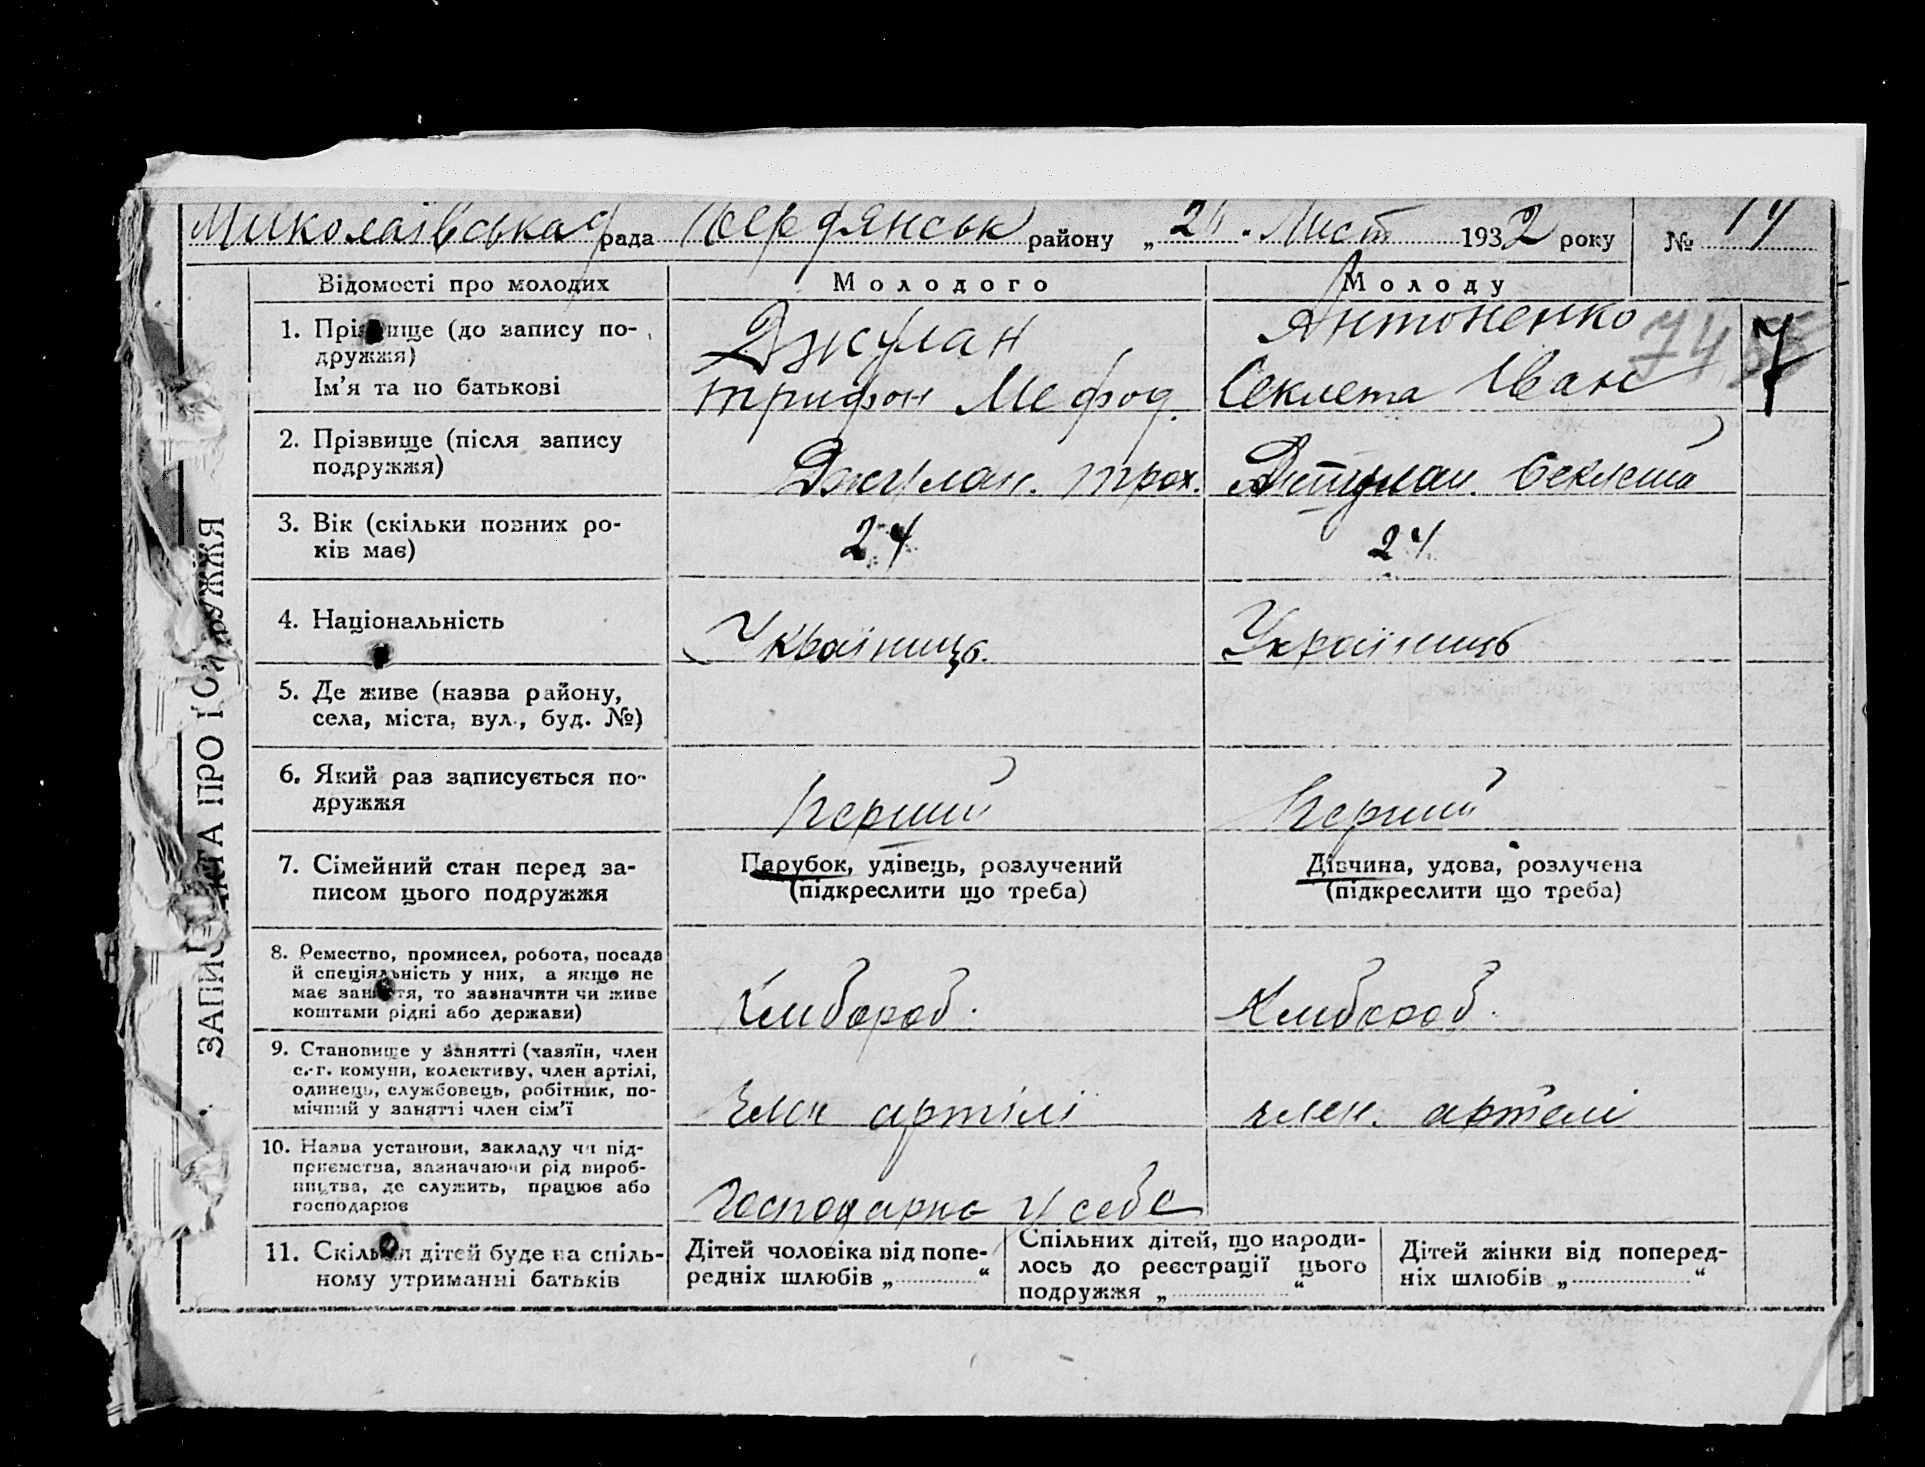 Миколаївська рада Бердянськ району „ 24 . Лист 1932 року № 14
ЗАПИС АКТА ПРО ОДРУЖЖЯ
Відомості про молодих
Молодого
Молоду
1. Прізвище (до запису по-
дружжя)
Ім’я та по батькові
Джулан
Трифон Мефод.
Антоненко
Секлета Іван
74
7
2. Прізвище (після запису
подружжя)
Джулан. Трох.
Джулан. Секлета
3. Вік (скільки повних ро-
ків має)
24
24
4. Національність
Українець.
Українець
5. Де живе (назва району,
села, міста, вул., буд. №)
6. Який раз записується по-
дружжя
Перший
Перший
7. Сімейний стан перед за-
писом цього подружжя
Парубок, удівець, розлучений
(підкреслити що треба)
Дівчина, удова, розлучена
(підкреслити що треба)
8. Ремество, промисел, робота, посада
й спеціяльність у них, а якщо не
має заняття, то зазначити чи живе
коштами рідні або держави)
Хлибороб.
Хлибороб.
9. Становище у занятті (хазяїн, член
с.-г. комуни, колективу, член артілі,
одинець, службовець, робітник, по-
мічний у занятті член сім’ї
член артілі
член. артелі
10. Назва установи, закладу чи під-
приємства, зазначаючи рід вироб-
ництва, де служить, працює або
господарює
Господарює у себе
11. Скільки дітей буде на спіль-
ному утриманні батьків
Дітей чоловіка від попе-
редніх шлюбів „ “
Спільних дітей, що народи-
лось до реєстрації цього
подружжя „ “
Дітей жінки від поперед-
ніх шлюбів „ “